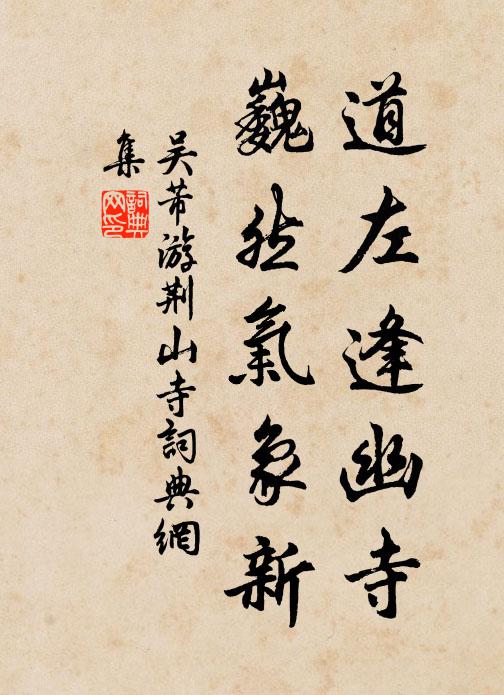 道左逢幽寺
巍然氣象新
吳芾游荆山寺詞典網
集
詞典
网印